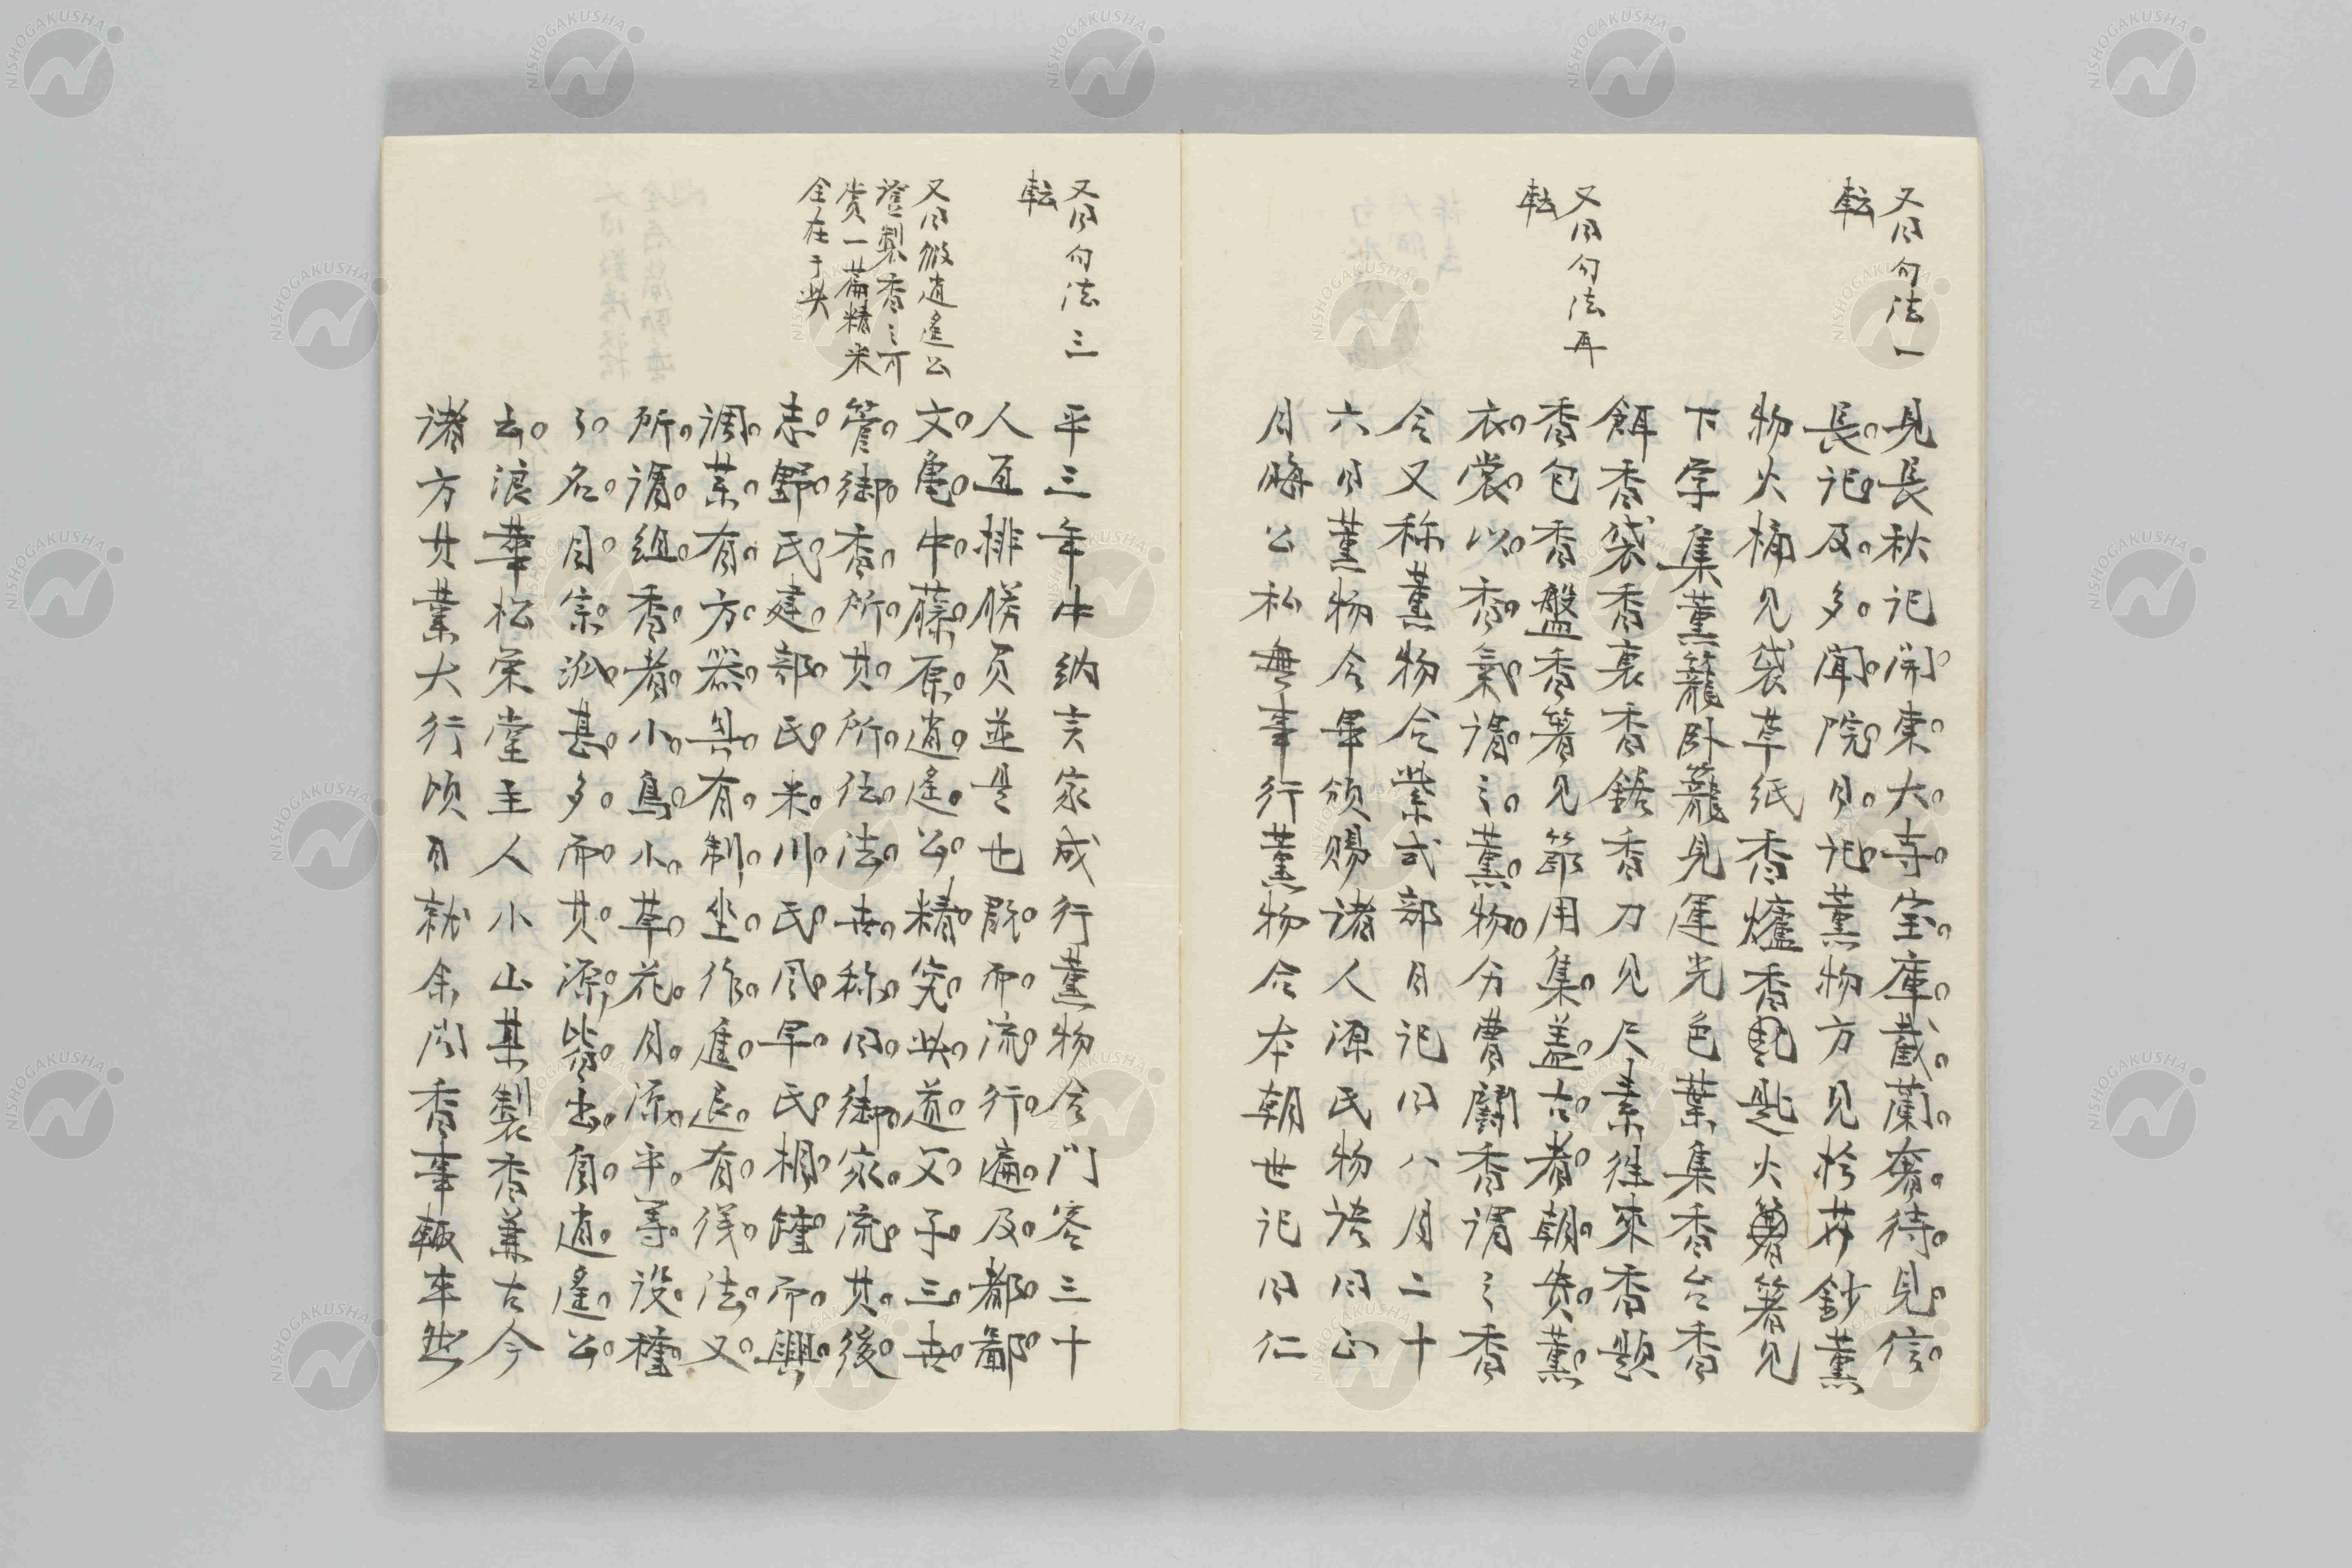 又曰句法一
転
又曰句法再
転
見長秋記開東大寺宝庫截蘭奢待見信
長記及多聞院日記薫物方見拾芥鈔薫
物火桶見袋草紙香爐香匙火箸見
下学集薫籠臥籠見運光色葉集香台香
餌香袋香裹香鋸香刀見尺素往来香題
香包香盤香箸見節用集蓋古者朝貴薫
衣裳以香氣謂之薫物分曹闘香謂之香
合又称薫物合紫式部日記曰八月二十
六日薫物合畢頒賜諸人源氏物語曰正
月晦公私無事行薫物合本朝世記曰仁
又曰句法三
転
又曰倣逍遙公
證製香之可
貴一篇精米
全在于此
平三年中納言家成行薫物合門客三十
人互排勝負並是也既而流行遍及都鄙
文亀中藤原逍遙公精究此道父子三世
管御香所其所伝法世称曰御家流其後
志野氏建部氏米川氏風早氏相踵而興
調葉有方器具有制坐作進退有儀法又
所謂組香者小鳥小草花月源平等設種
名目宗派甚多而其源皆出自逍遙公
去浪華松栄堂主人小山某製香兼古今
諸方其業大行頃日就余問香事輙率然